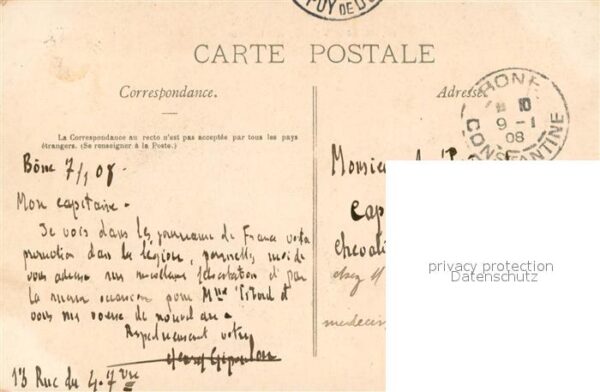 PUY DE DÔ
CARTE POSTALE
Correspondance.
Adresse.
BONE
10
9 - 1
08
CONSTANTINE
La Correspondance au recto n'est pas acceptée par tous les pays
étrangers. (Se renseigner à la Poste.)
Bône 7/1 08
Mon capitaine -
Je vois dans les journeaux de France votre
promotion dans la légion, permettez moi de
vous adresser mes meilleures félicitations et par
la même occasion pour Mme et
vous mes voeux de nouvel an
Respectueusement votre
13 Rue du 4 7bre
Monsieur
cap
chevali
chez M
medecin
privacy protection
Datenschutz